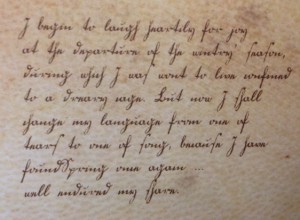 I begin to laugh heartily for joy
at the departure of the wintry season,
during which I was wont to live confined
to a dreary cage. But now I shall
change my language from one of
tears to one of song, because I have
found Spring once again ...
well endured my share.